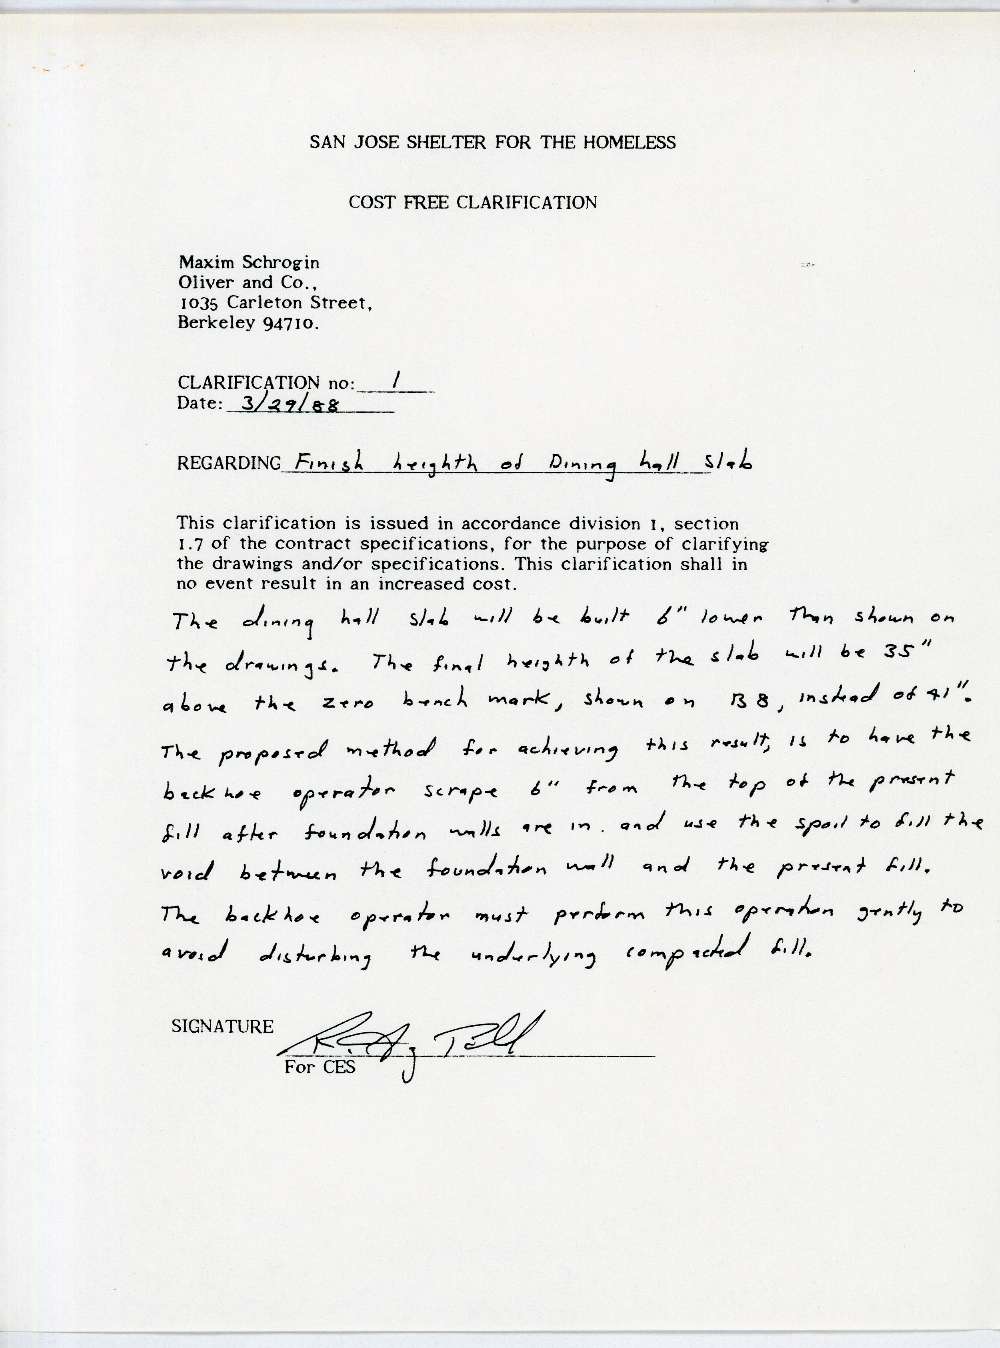 SAN JOSE SHELTER FOR THE HOMELESS
COST FREE CLARIFICATION
Maxim Schrogin
Oliver and Co.,
1035 Carleton Street,
Berkeley 94710.
CLARIFICATION no: 1
Date: 3/29/88
REGARDING Finish heighth of Dining hall Slab
This clarification is issued in accordance division 1, section
1.7 of the contract specifications, for the purpose of clarifying
the drawings and/or specifications. This clarification shall in
no event result in an increased cost.
The dining hall slab will be built 6" lower than shown on
the drawings. The final heighth of the slab will be 35"
above the zero bench mark, shown on B8, instead of 41".
The proposed method for achieving this result, is to have the
backhoe operator scrape 6" from the top of the present
fill after foundation walls are in. and use the spoil to fill the
void between the foundation wall and the present fill.
The backhoe operator must perform this operation gently to
avoid disturbing the underlying compacted fill.
SIGNATURE
For CES